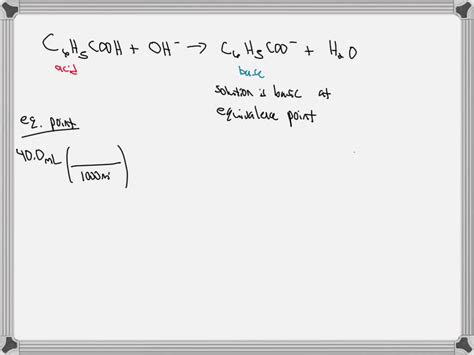 C₆H₅COOH + OH⁻ → C₆H₅COO⁻ + H₂O
acid base
solution is basic at
equivalence point
eq. point
40.0mL (/1000ml)